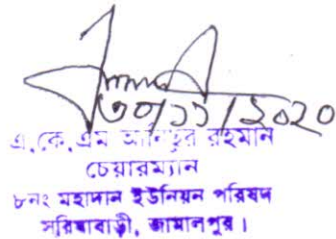 ৩০/১১/২০২০
এ,কে,এম আনিছুর রহমান
চেয়ারম্যান
৮নং মহাদান ইউনিয়ন পরিষদ
সরিষাবাড়ী, জামালপুর।